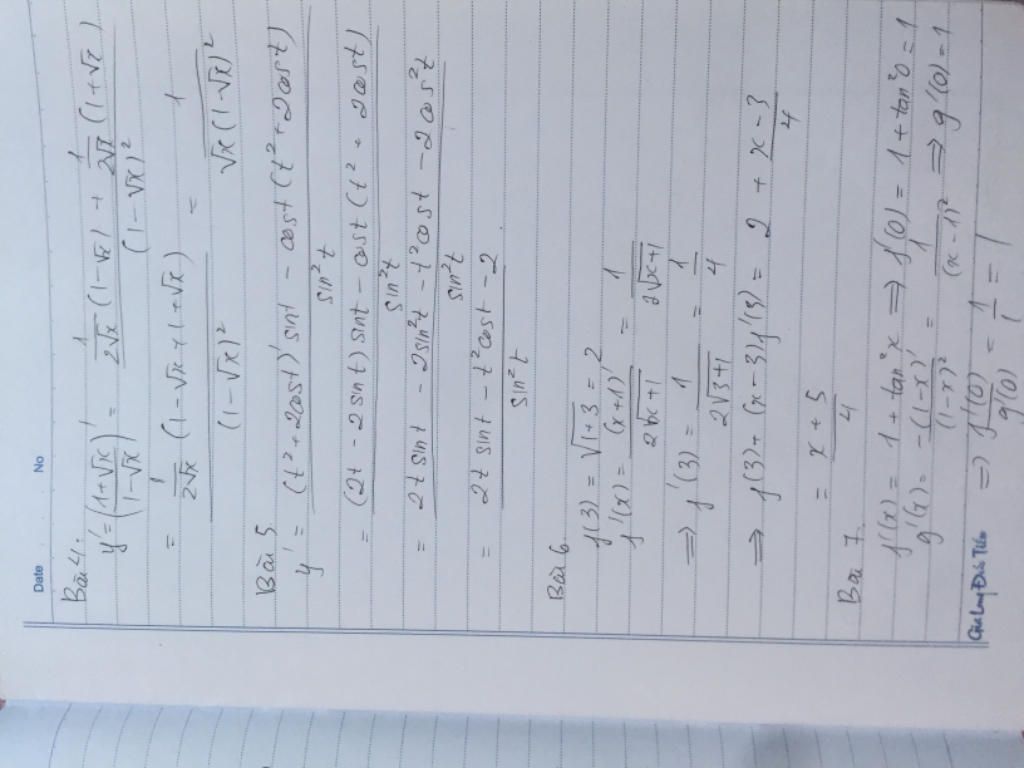 Date No
Bài 4.
y' = ((1+√x)/(1-√x))' = (1/(2√x) (1-√x) + 1/(2√x) (1+√x))/(1-√x)²
= (1/(2√x) (1-√x+1+√x))/(1-√x)² = 1/(√x(1-√x)²)
Bài 5
y' = ((t²+2cost)' sint - cost(t²+2cost))/sin²t
= ((2t-2sint)sint - cost(t²+2cost))/sin²t
= (2t sint - 2sin²t - t²cost - 2cos²t)/sin²t
= (2t sint - t²cost - 2)/sin²t
Bài 6
f(3) = √(1+3) = 2
f'(x) = (x+1)'/(2√(x+1)) = 1/(2√(x+1))
⇒ f'(3) = 1/(2√(3+1)) = 1/4
⇒ f(3) + (x-3)f'(3) = 2 + (x-3)/4
= (x+5)/4
Bài 7.
f'(x) = 1 + tan²x ⇒ f'(0) = 1 + tan²0 = 1
g'(x) = -(1-x)'/(1-x)² = 1/(x-1)² ⇒ g'(0) = 1
⇒ f'(0)/g'(0) = 1/1 = 1